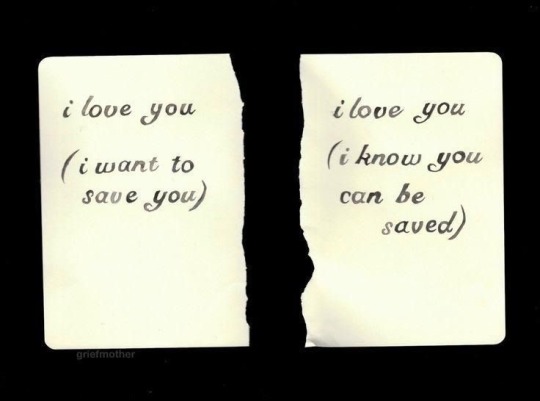 i love you
(i want to
save you)
i love you
(i know you
can be
saved)
griefmother